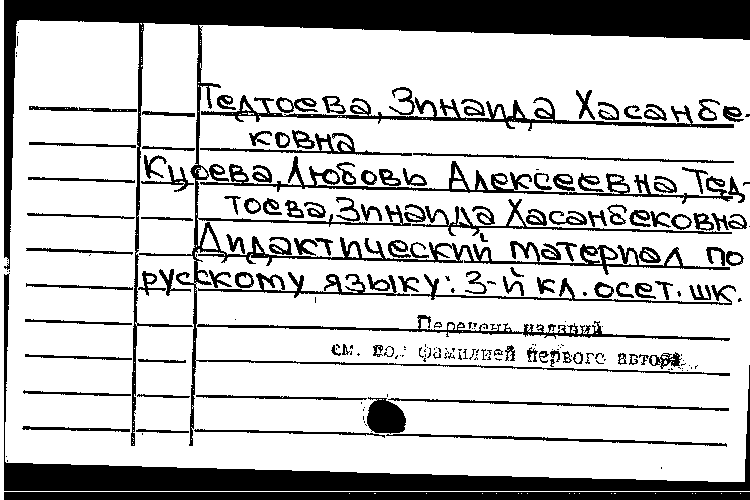 Тедтоева, Зинаида Хасанбе-
ковна
Кцоева, Любовь Алексеевна, Тед-
тоева, Зинаида Хасанбековна
Дидактический материал по
русскому языку: 3-й кл. осет. шк.
Перечень изданий
см. под фамилией первого автора